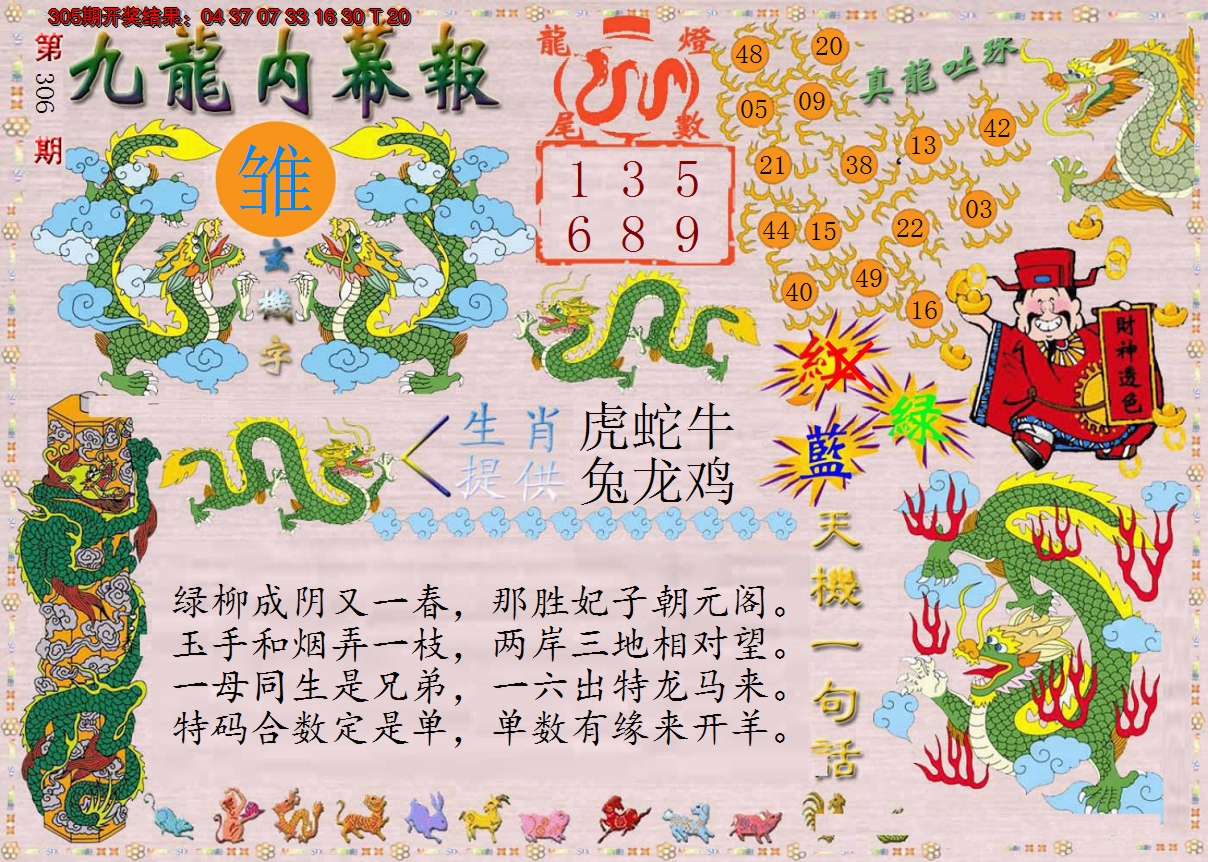 305期开奖结果：04 37 07 33 16 30 T 20
第306期
九龍内幕報
雏
玄機字
龍燈
尾數
1 3 5
6 8 9
真龍吐珠
48 20
05 09
13 42
21 38
03
44 15 22
40 49
16
財神透色
紅
绿
藍
生肖 虎蛇牛
提供 兔龙鸡
天機一句話
绿柳成阴又一春，那胜妃子朝元阁。
玉手和烟弄一枝，两岸三地相对望。
一母同生是兄弟，一六出特龙马来。
特码合数定是单，单数有缘来开羊。